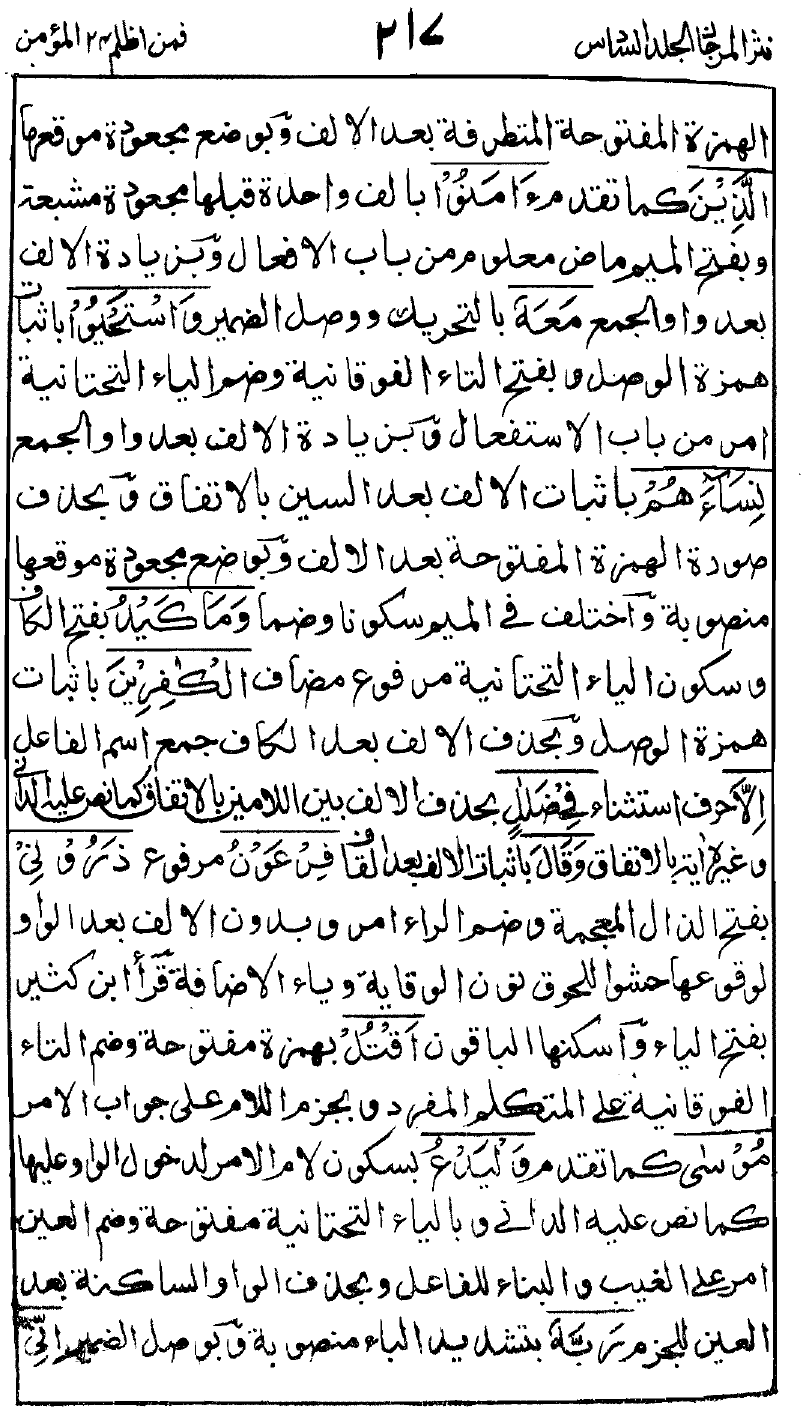 نثر المرجان الجلد السادس ٢١٧ فمن اظلم ٢٤ المؤمن
الهمزة المفتوحة المتطرفة بعد الالف وَبوضع مجعودة موقعها
الَّذِيْنَ كما تقدم ءَامَنُوْا بالف واحدة قبلها مجعودة مشبعة
وبفتح الميم ماض معلوم من باب الافعال وَبزيادة الالف
بعد واو الجمع مَعَهٗ بالتحريك ووصل الضمير وَاسْتَحْيُوْا باثبات
همزة الوصل وبفتح التاء الفوقانية وضم الياء التحتانية
امر من باب الاستفعال وَبزيادة الالف بعد واو الجمع
نِسَآءَهُمْ باثبات الالف بعد السين بالاتفاق وَبحذف
صورة الهمزة المفتوحة بعد الالف وَبوضع مجعودة موقعها
منصوبة وَاختلف في الميم سكونا وضما وَمَا كَيْدُ بفتح الكاف
وسكون الياء التحتانية مرفوع مضاف الْكٰفِرِيْنَ باثبات
همزة الوصل وَبحذف الالف بعد الكاف جمع اسم الفاعل
اِلَّا حرف استثناء فِيْ ضَلٰلٍ بحذف الالف بين اللامين بالاتفاق كما نص عليه الداني
وغيره اٰية بالاتفاق وَقَالَ باثبات الالف بعد القاف فِرْعَوْنُ مرفوع ذَرُوْنِيْٓ
بفتح الذال المعجمة وضم الراء امر وبدون الالف بعد الواو
لوقوعها حشوا للحوق نون الوقاية وياء الاضافة قَرأ ابن كثير
بفتح الياء وَاسكنها الباقون اَقْتُلْ بهمزة مفتوحة وضم التاء
الفوقانية على المتكلم المفرد وبجزم اللام على جواب الامر
مُوْسٰى كما تقدم وَلْيَدْعُ بسكون لام الامر لدخول الواو عليها
كما نص عليه الداني وبالياء التحتانية مفتوحة وضم العين
امر على الغيب والبناء للفاعل وبحذف الواو الساكنة بعد
العين للجزم رَبَّهٗ بتشديد الباء منصوبة وَبوصل الضمير اِنِّيْٓ